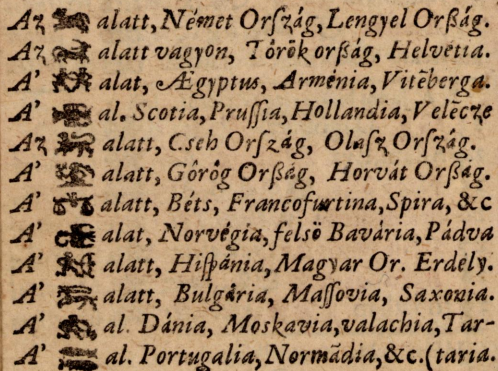 Az alatt, Német Orſzág, Lengyel Orßág.
Az alatt vagyon, Tôrôk orßág, Helvetia.
A' alat, Ægyptus, Arménia, Vitẽberga.
A' al. Scotia, Pruſſia, Hollandia, Velẽcze
Az alatt, Cseh Orſzág, Olasz Orſzág.
A' alatt, Gôrôg Orßág, Horvát Orßág.
A' alatt, Béts, Francofurtina, Spira, &c
A' alat, Norvégia, felsö Bavária, Pádva
A' alatt, Hiſpánia, Magyar Or. Erdély.
A' alatt, Bulgária, Maſſovia, Saxonia.
A' al. Dánia, Moskavia, valachia, Tar-
A' al. Portugalia, Normãdia, &c. (taria.